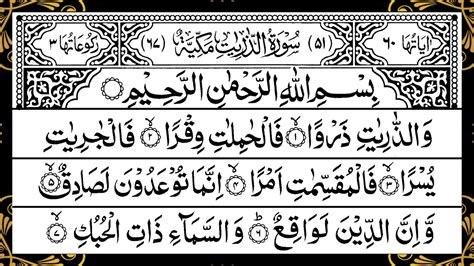 اٰیَاتُهَا ٦٠ (٥١) سُوْرَةُ الذّٰرِیٰتِ مَكِّیَّةٌ (٦٧) رُكُوْعَاتُهَا ٣
بِسْمِ اللّٰهِ الرَّحْمٰنِ الرَّحِیْمِ
وَالذّٰرِیٰتِ ذَرْوًا ۙ﴿١﴾ فَالْحٰمِلٰتِ وِقْرًا ۙ﴿٢﴾ فَالْجٰرِیٰتِ
یُسْرًا ۙ﴿٣﴾ فَالْمُقَسِّمٰتِ اَمْرًا ۙ﴿٤﴾ اِنَّمَا تُوْعَدُوْنَ لَصَادِقٌ ۙ﴿٥﴾
وَّاِنَّ الدِّیْنَ لَوَاقِعٌ ؕ﴿٦﴾ وَالسَّمَآءِ ذَاتِ الْحُبُكِ ۙ﴿٧﴾